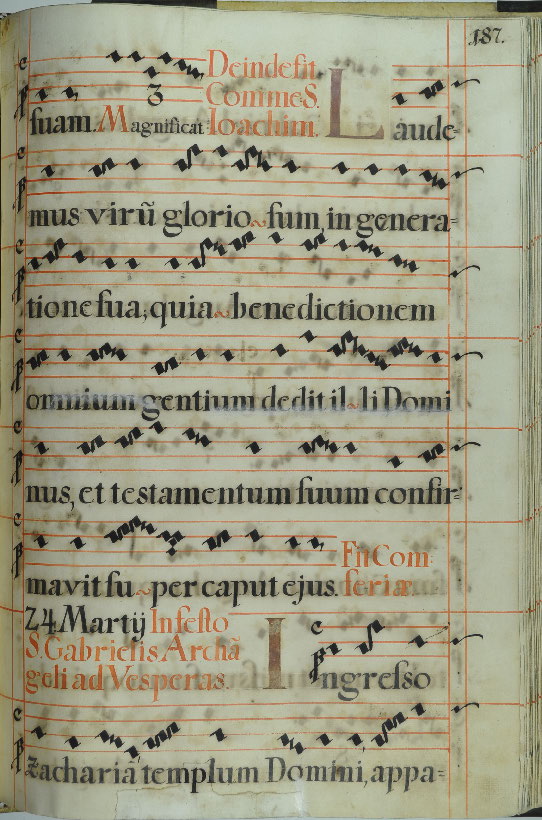 187.
Deinde fit
Comme S.
suam. Magnificat. Ioachim. Laude-
3
mus virũ glorio~sum, in genera-
tione sua, quia~benedictionem
omnium gentium dedit il~li Domi
nus, et testamentum suum confir-
mavit su~per caput ejus. Fit Com.
feriæ.
24. Martÿ In festo
S. Gabrielis Archã
geli ad Vesperas. Ingresso
Zacharia templum Domini, appa-